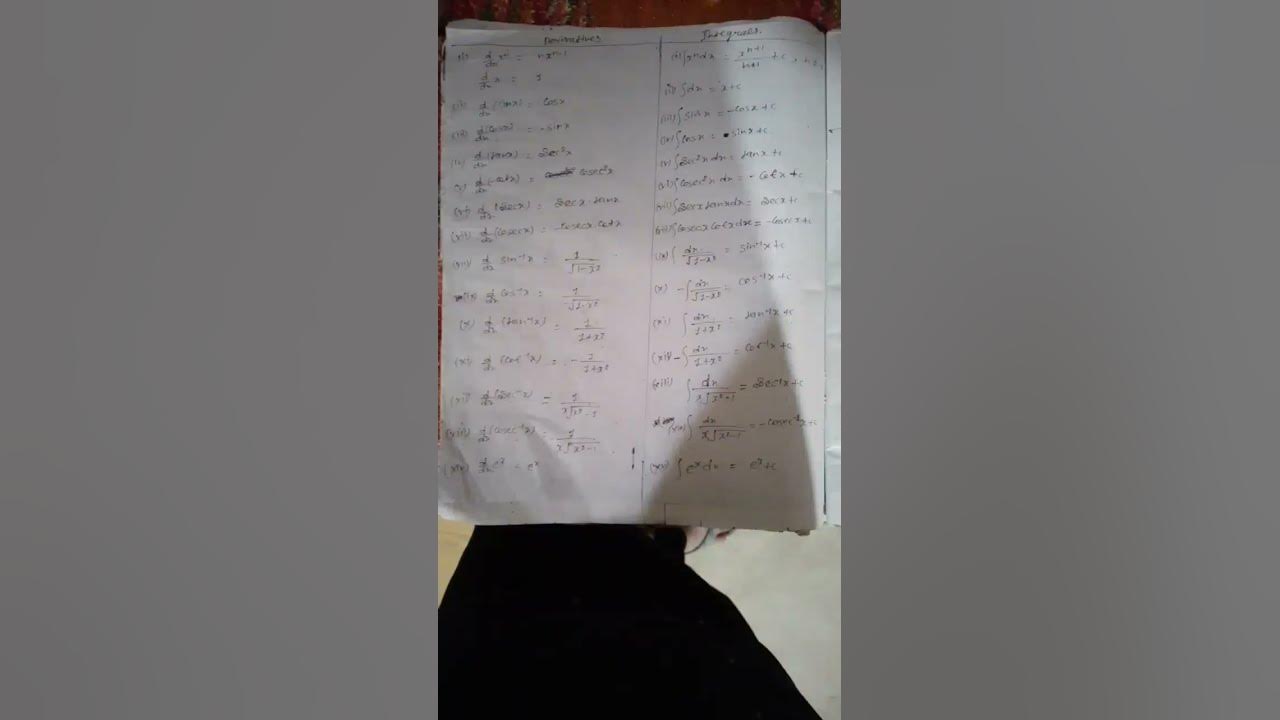 Derivatives
(i) d/dx xⁿ = nxⁿ⁻¹
d/dx x = 1
(ii) d/dx (sinx) = cosx
(iii) d/dx (cosx) = -sinx
(iv) d/dx (tanx) = Sec²x
(v) d/dx (-cotx) = cosec²x
(vi) d/dx (Secx) = Secx.tanx
(vii) d/dx (cosecx) = -Cosecx.Cotx
(viii) d/dx sin⁻¹x = 1/√1-x²
(ix) d/dx cos⁻¹x = 1/-√1-x²
(x) d/dx (tan⁻¹x) = 1/1+x²
(xi) d/dx (cot⁻¹x) = -1/1+x²
(xii) d/dx (Sec⁻¹x) = 1/x√x²-1
(xiii) d/dx (cosec⁻¹x) = -1/x√x²-1
(xiv) d/dx eˣ = eˣ
Integrals.
(i) ∫xⁿdx = xⁿ⁺¹/n+1 +c,
(ii) ∫dx = x+c
(iii) ∫sinx = -cosx+c
(iv) ∫cosx = sinx+c
(v) ∫Sec²x dx = tanx+c
(vi) ∫cosec²x dx = -Cotx+c
(vii) ∫Secx tanx dx = Secx+c
(viii) ∫Cosecx Cotx dx = -Cosecx+c
(ix) ∫dx/√1-x² = sin⁻¹x+c
(x) -∫dx/√1-x² = cos⁻¹x+c
(xi) ∫dx/1+x² = tan⁻¹x+c
(xii) -∫dx/1+x² = Cot⁻¹x+c
(xiii) ∫dx/x√x²-1 = Sec⁻¹x+c
(xiv) ∫dx/x√x²-1 = -cosec⁻¹x+c
(xv) ∫eˣdx = eˣ+c